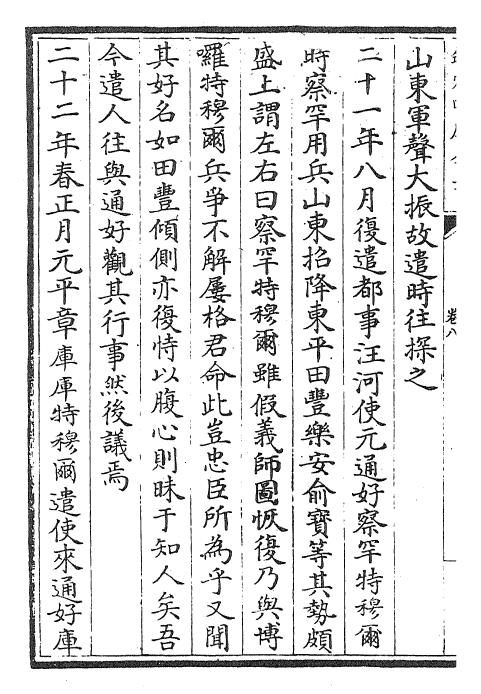 山東軍聲大振故遣時往探之
二十一年八月復遣都事汪河使元通好察罕特穆爾
時察罕用兵山東招降東平田豐樂安俞寶等其勢頗
盛上謂左右曰察罕特穆爾雖假義師圖恢復乃與博
囉特穆爾兵爭不解屢格君命此豈忠臣所為乎又聞
其好名如田豐傾側亦復恃以腹心則昧于知人矣吾
今遣人往與通好觀其行事然後議焉
二十二年春正月元平章庫庫特穆爾遣使來通好庫
卷八